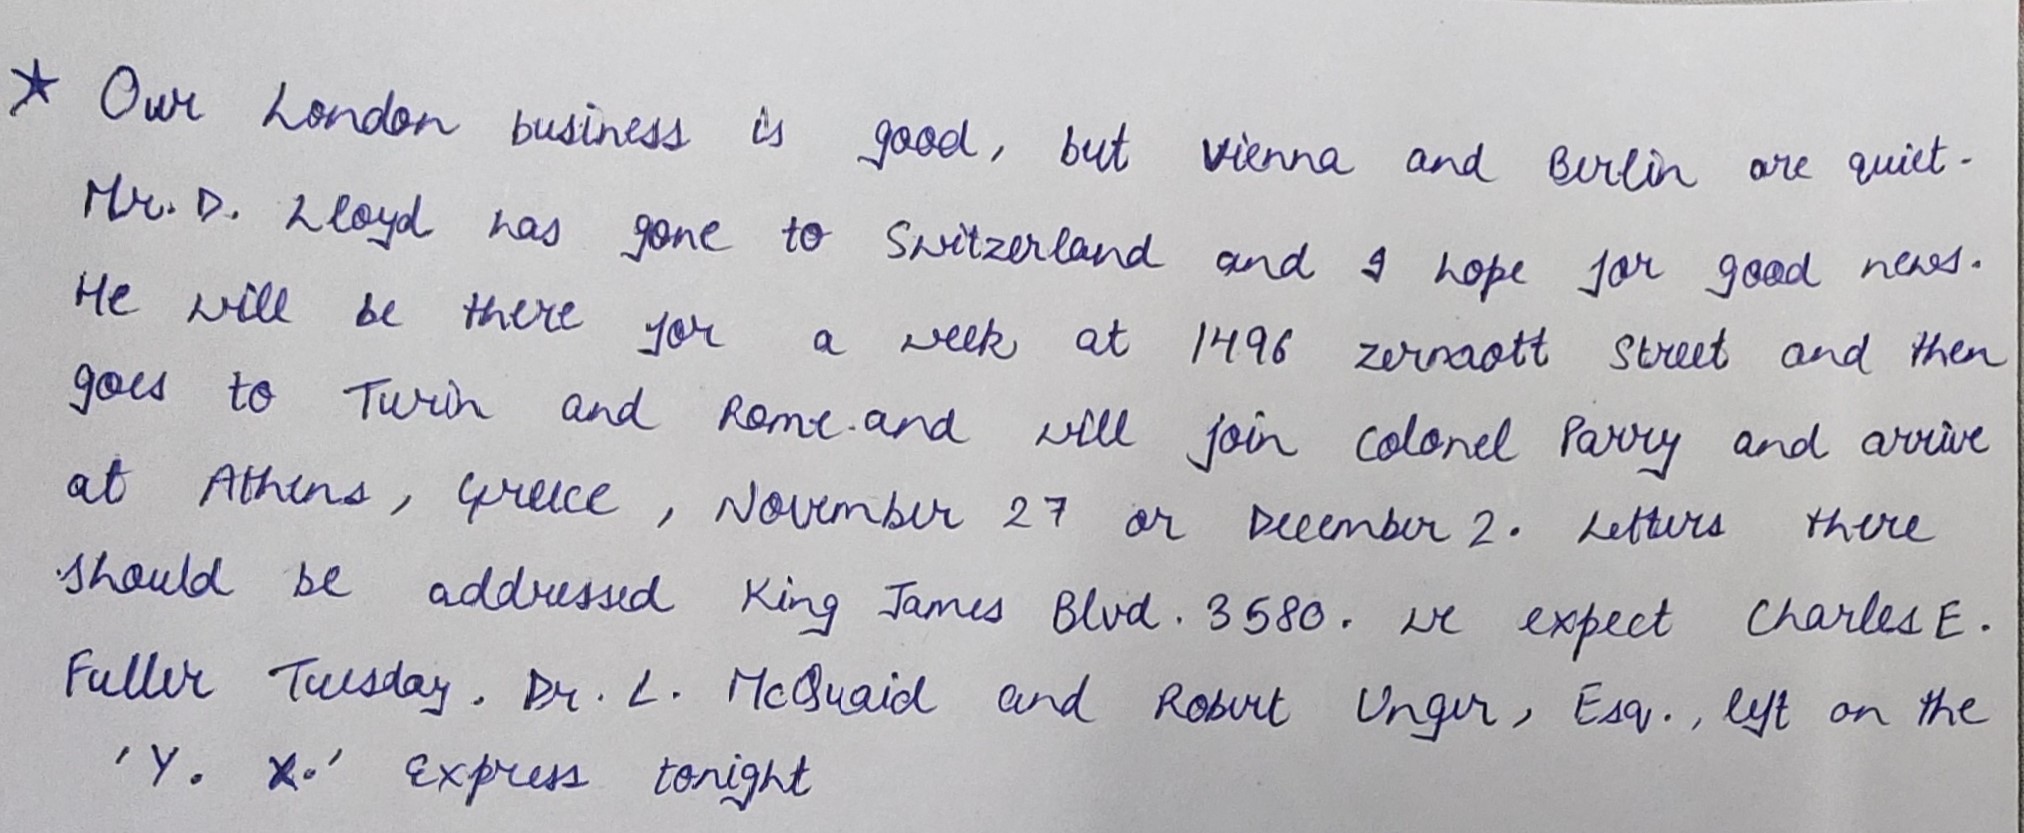 ★ Our London business is good, but Vienna and Berlin are quiet.
Mr. D. Lloyd has gone to Switzerland and I hope for good news.
He will be there for a week at 1496 zermott Street and then
goes to Turin and Rome.and will join Colonel Parry and arrive
at Athens, Greece, November 27 or December 2. Letters there
should be addressed King James Blvd. 3580. We expect Charles E.
Fuller Tuesday. Dr. L. McQuaid and Robert Unger, Esq., left on the
'Y. X.' Express tonight